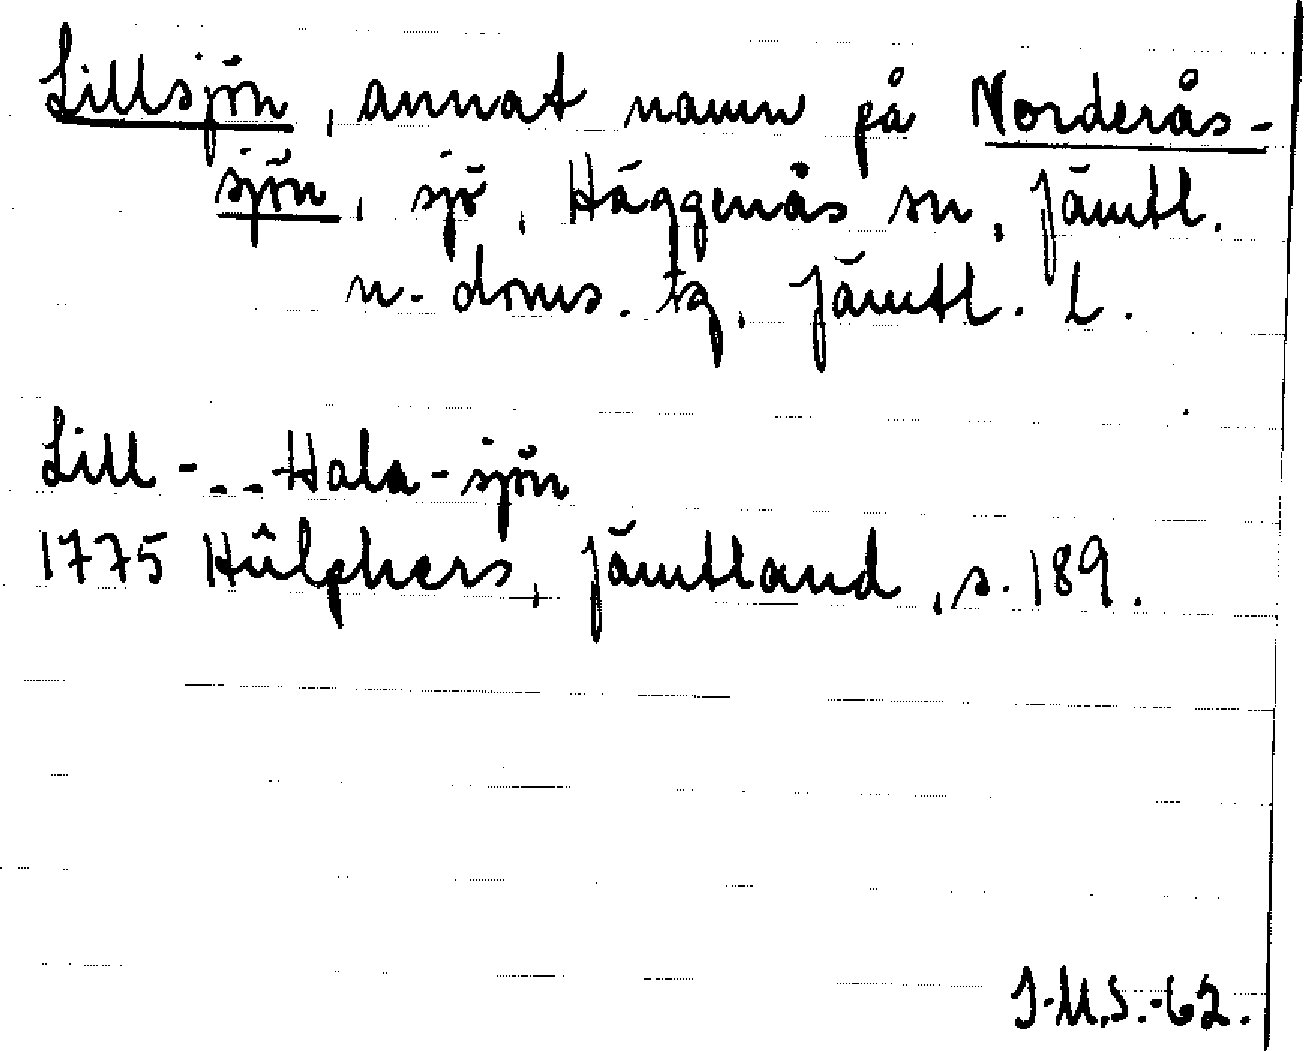 Lillsjön, annat namn på Norderås-
sjön, sjö, Häggenås sn, Jämtl.
n. doms. tg, Jämtl. L.
Lill - -- Hala - sjön
1775 Hülphers, Jämtland, s. 189.
I.M.S.-62.